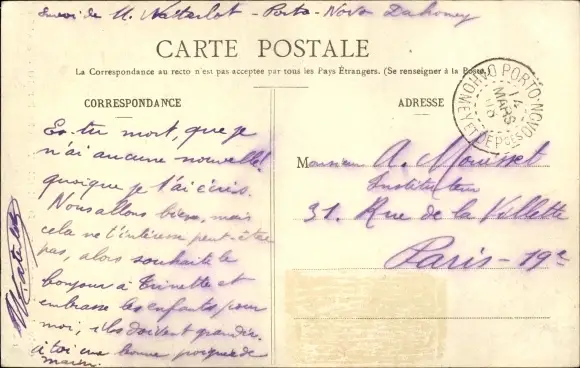 Envoi de M. Nattarlot - Porto-Novo Dahomey
CARTE POSTALE
La Correspondance au recto n'est pas acceptée par tous les Pays Étrangers. (Se renseigner à la Poste.)
CORRESPONDANCE
Es-tu mort, que je
n'ai aucune nouvelle!
quoique je t'ai écris.
Nous allons bien, mais
cela ne t'intéresse peut-être
pas, alors souhaite le
bonjour à Trinette et
embrasse les enfants pour
moi, ils doivent grandir.
à toi une bonne poignée de
main.
ADRESSE
PORTO-NOVO
14
MARS
DAHOMEY ET DEP
Monsieur A. Mouisset
Instituteur
31. Rue de la Villette
Paris - 19e